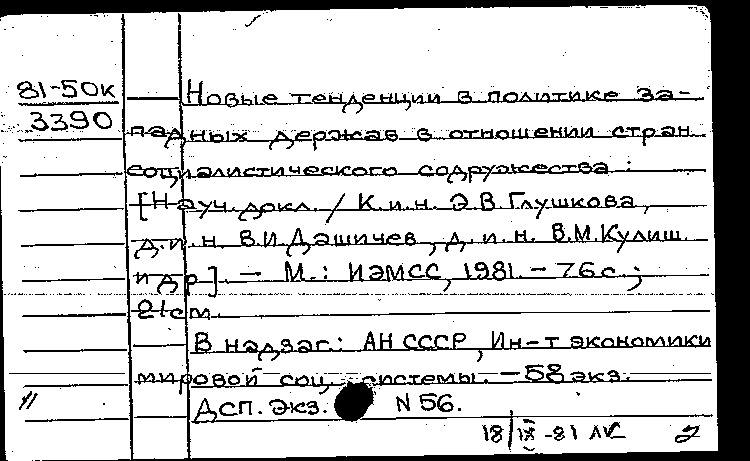 81-50к
3390
Новые тенденции в политике за-
падных держав в отношении стран
социалистического содружества :
[Науч. докл. / К. и. н. Э.В. Глушкова,
д. и. н. В.И Дашичев, д. и. н. В.М. Кулиш
и др]. - М.: ИЭМСС, 1981. - 76 с.;
21 см.
В надзаг.: АН СССР, Ин-т экономики
мировой соц. системы. - 58 экз.
ДСП. Экз. N 56.
18/IX-81
2